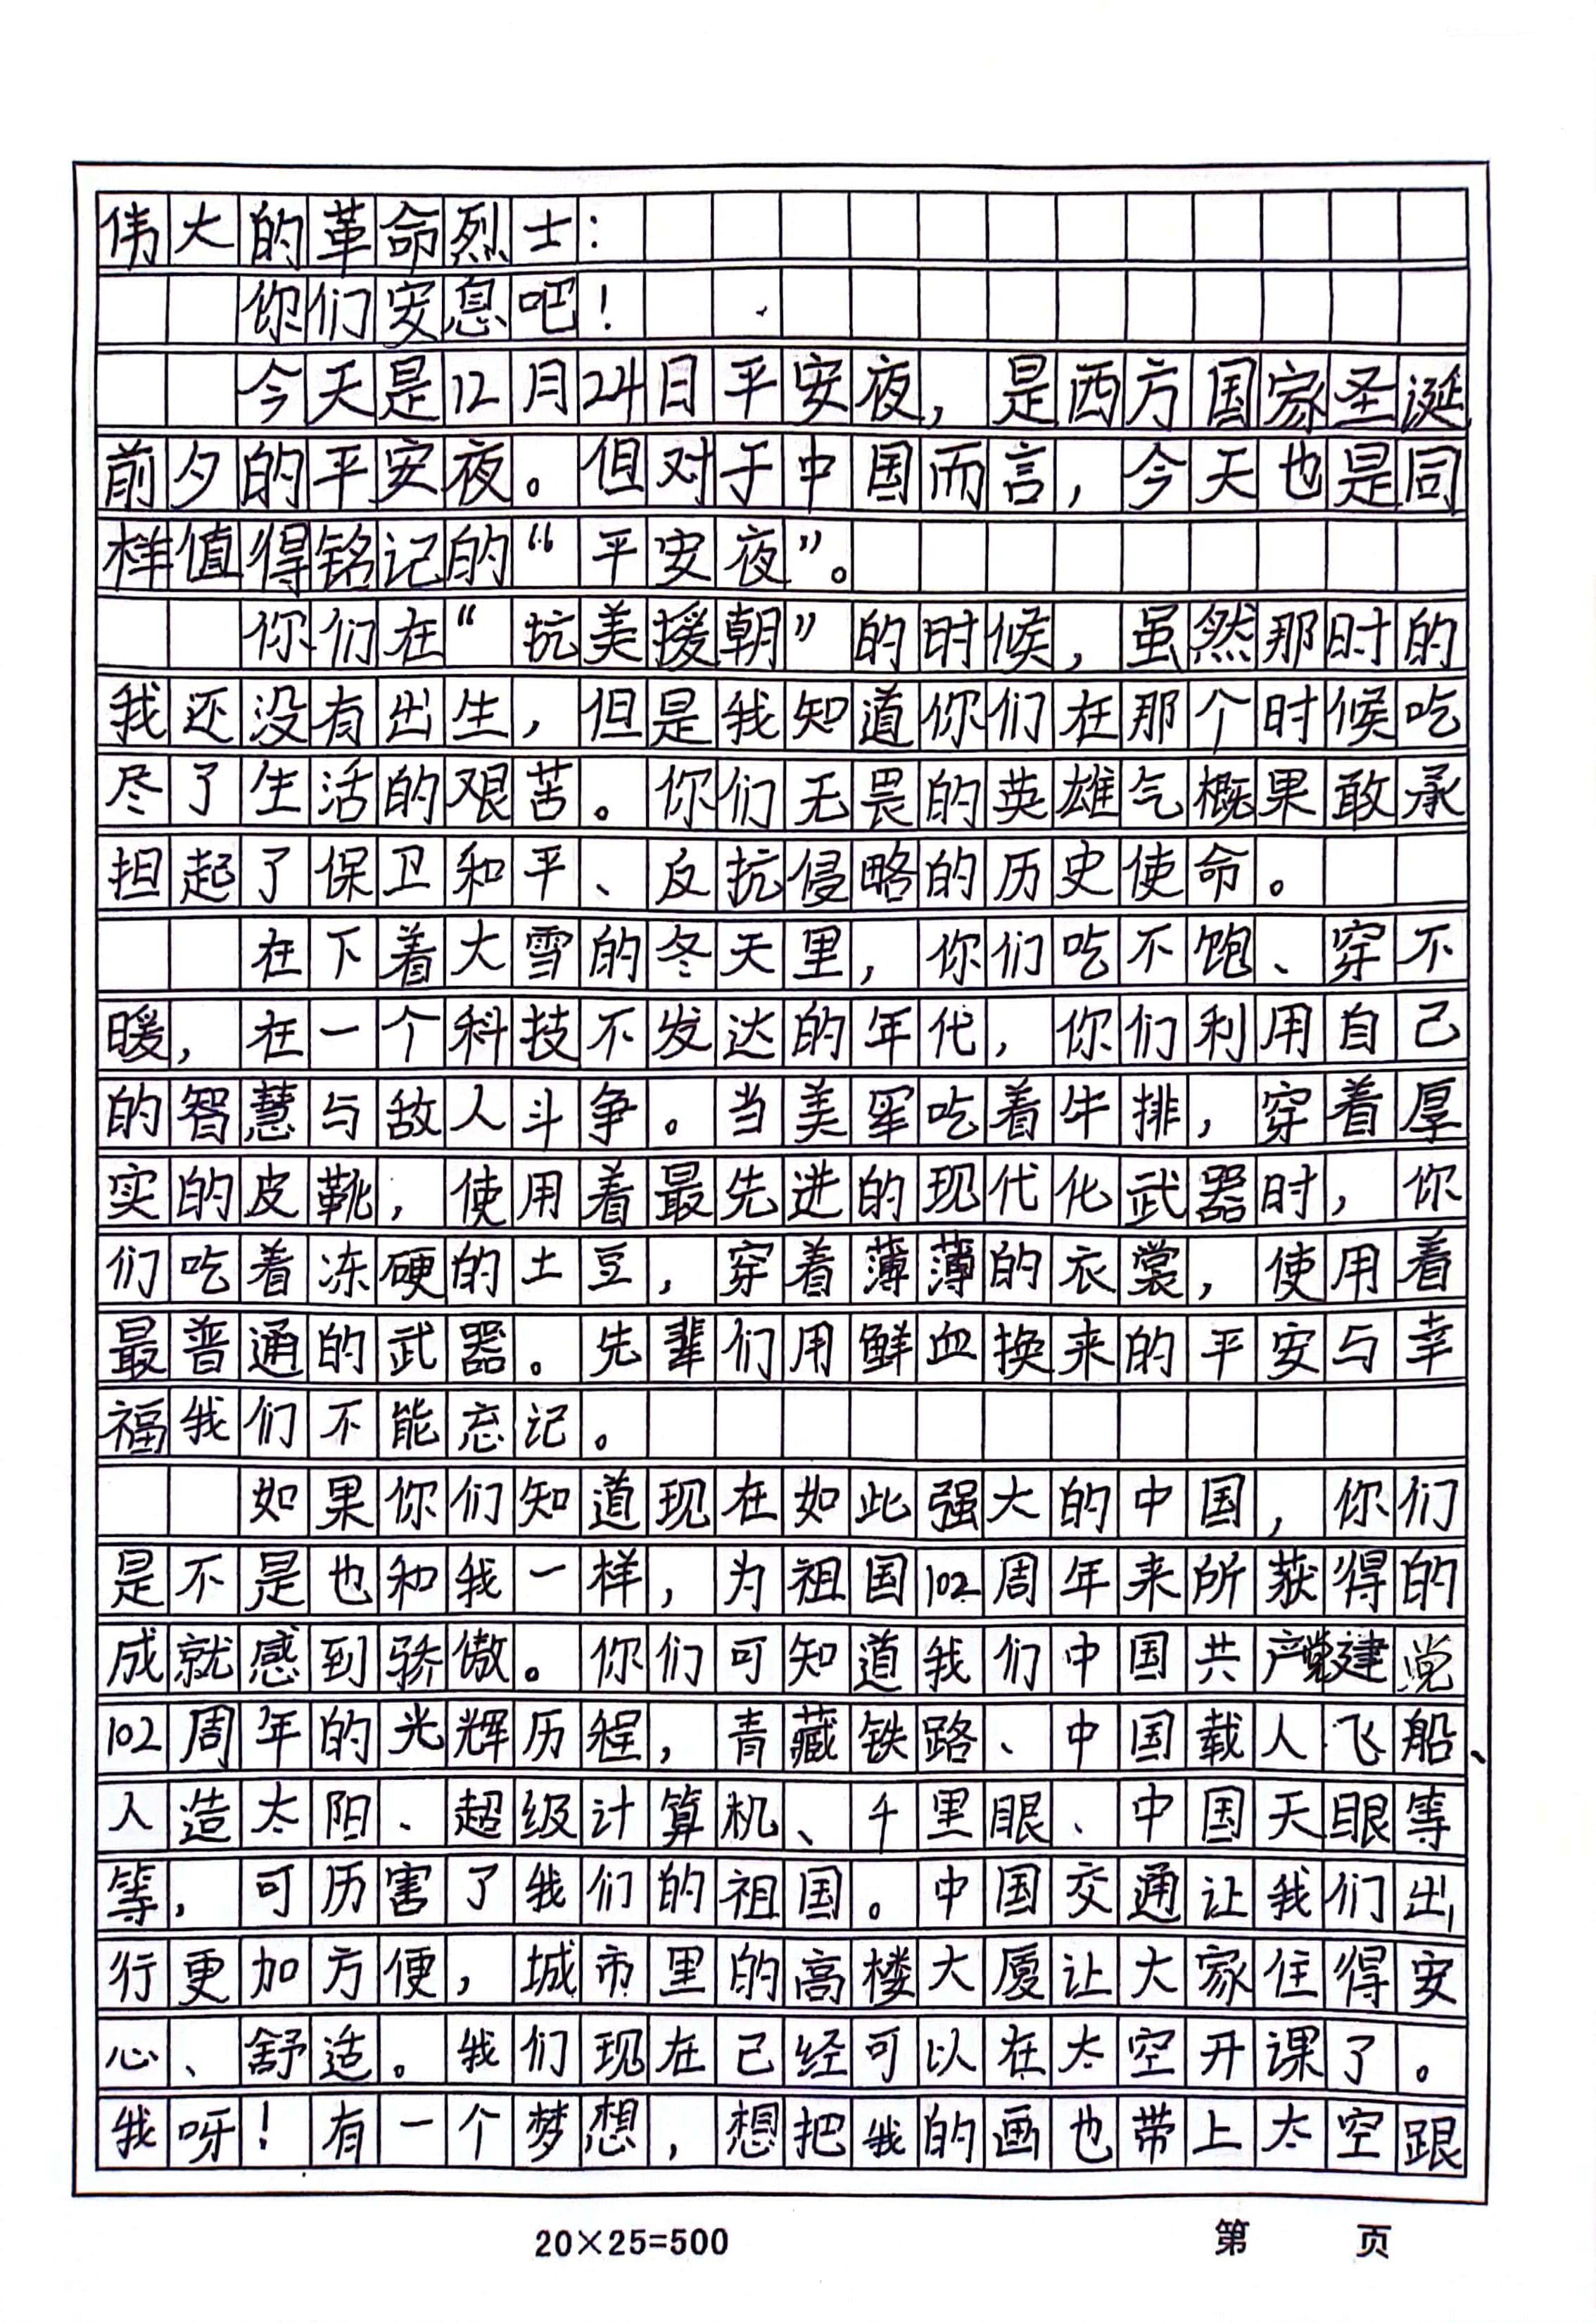 伟大的革命烈士：
你们安息吧！
今天是12月24日平安夜，是西方国家圣诞
前夕的平安夜。但对于中国而言，今天也是同
样值得铭记的“平安夜”。
你们在“抗美援朝”的时候，虽然那时的
我还没有出生，但是我知道你们在那个时候吃
尽了生活的艰苦。你们无畏的英雄气概果敢承
担起了保卫和平、反抗侵略的历史使命。
在下着大雪的冬天里，你们吃不饱、穿不
暖，在一个科技不发达的年代，你们利用自己
的智慧与敌人斗争。当美军吃着牛排，穿着厚
实的皮靴，使用着最先进的现代化武器时，你
们吃着冻硬的土豆，穿着薄薄的衣裳，使用着
最普通的武器。先辈们用鲜血换来的平安与幸
福我们不能忘记。
如果你们知道现在如此强大的中国，你们
是不是也和我一样，为祖国102周年来所获得的
成就感到骄傲。你们可知道我们中国共产党建党
102周年的光辉历程，青藏铁路、中国载人飞船、
人造太阳、超级计算机、千里眼、中国天眼等
等，可历害了我们的祖国。中国交通让我们出
行更加方便，城市里的高楼大厦让大家住得安
心、舒适。我们现在已经可以在太空开课了。
我呀！有一个梦想，想把我的画也带上太空跟
20×25=500
第 页